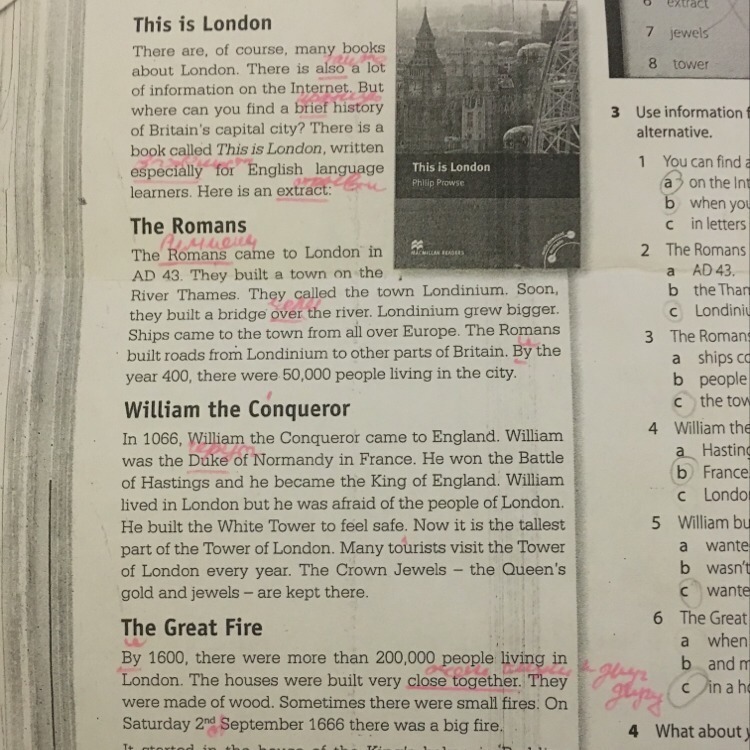 This is London
There are, of course, many books
about London. There is also a lot
of information on the Internet. But
where can you find a brief history
of Britain's capital city? There is a
book called This is London, written
especially for English language
learners. Here is an extract:
The Romans
Римляне
The Romans came to London in
AD 43. They built a town on the
River Thames. They called the town Londinium. Soon,
через
they built a bridge over the river. Londinium grew bigger.
Ships came to the town from all over Europe. The Romans
built roads from Londinium to other parts of Britain. By the
year 400, there were 50,000 people living in the city.
William the Conqueror
In 1066, William the Conqueror came to England. William
герцог
was the Duke of Normandy in France. He won the Battle
of Hastings and he became the King of England. William
lived in London but he was afraid of the people of London.
He built the White Tower to feel safe. Now it is the tallest
part of the Tower of London. Many tourists visit the Tower
of London every year. The Crown Jewels – the Queen's
gold and jewels – are kept there.
The Great Fire
By 1600, there were more than 200,000 people living in
London. The houses were built very close together. They
друг
другу
were made of wood. Sometimes there were small fires. On
Saturday 2nd September 1666 there was a big fire.
This is London
Philip Prowse
MACMILLAN READERS
6 extract
7 jewels
8 tower
3 Use information
alternative.
1 You can find a
a on the Int
b when you
c in letters
2 The Romans
a AD 43.
b the Tham
c Londiniu
3 The Romans
a ships co
b people
c the tow
4 William the
a Hasting
b France
c Londo
5 William bu
a wante
b wasn't
c wante
6 The Great
a when
b and m
c in a ho
4 What about